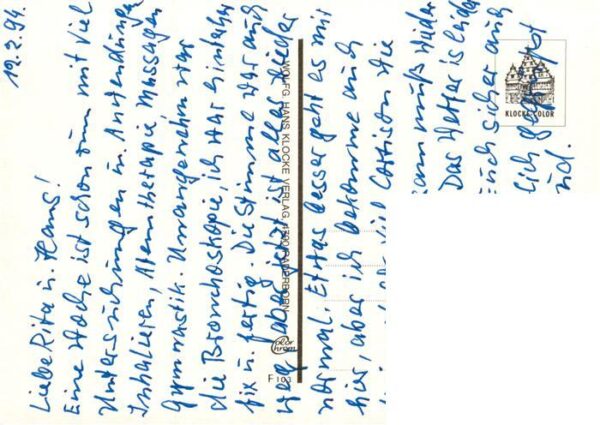 19.2.94.
Liebe Rita u. Hans!
Eine Woche ist schon rum mit viel
Untersuchungen u. Anwendungen
Inhalieren, Atemtherapie Massagen
Gymnastik. Unangenehm war
die Bronchoskopie, ich war hinterher
fix u. fertig. Die Stimme war auch
weg, aber jetzt ist alles wieder
normal. Etwas besser geht es mir
hier, aber ich bekomme auch
viel Cortison die
muß wieder
Das Wetter is leider
Euch sicher auch
lich
WOLFG. HANS KLOCKE VERLAG, 4790 PADERBORN
Color Chrom
F 103
KLOCKE COLOR